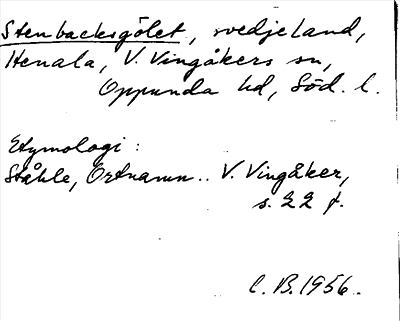 Stenbacksgölet, svedjeland,
Henala, V. Vingåkers sn,
Oppunda hd, Söd. l.
Etymologi:
Ståhle, Ortnamn.. V. Vingåker,
s. 22 f.
C. B. 1956.